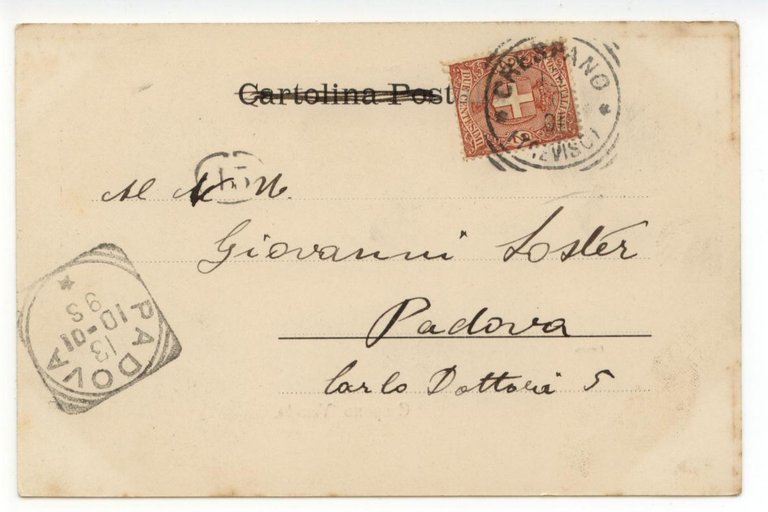 Cartolina Post
CRESPANO
(TREVISO)
DUE CENT
15
Al N. H.
Giovanni Soster
Padova
Carlo Dottori 5
PADOVA
13
10-01
9S